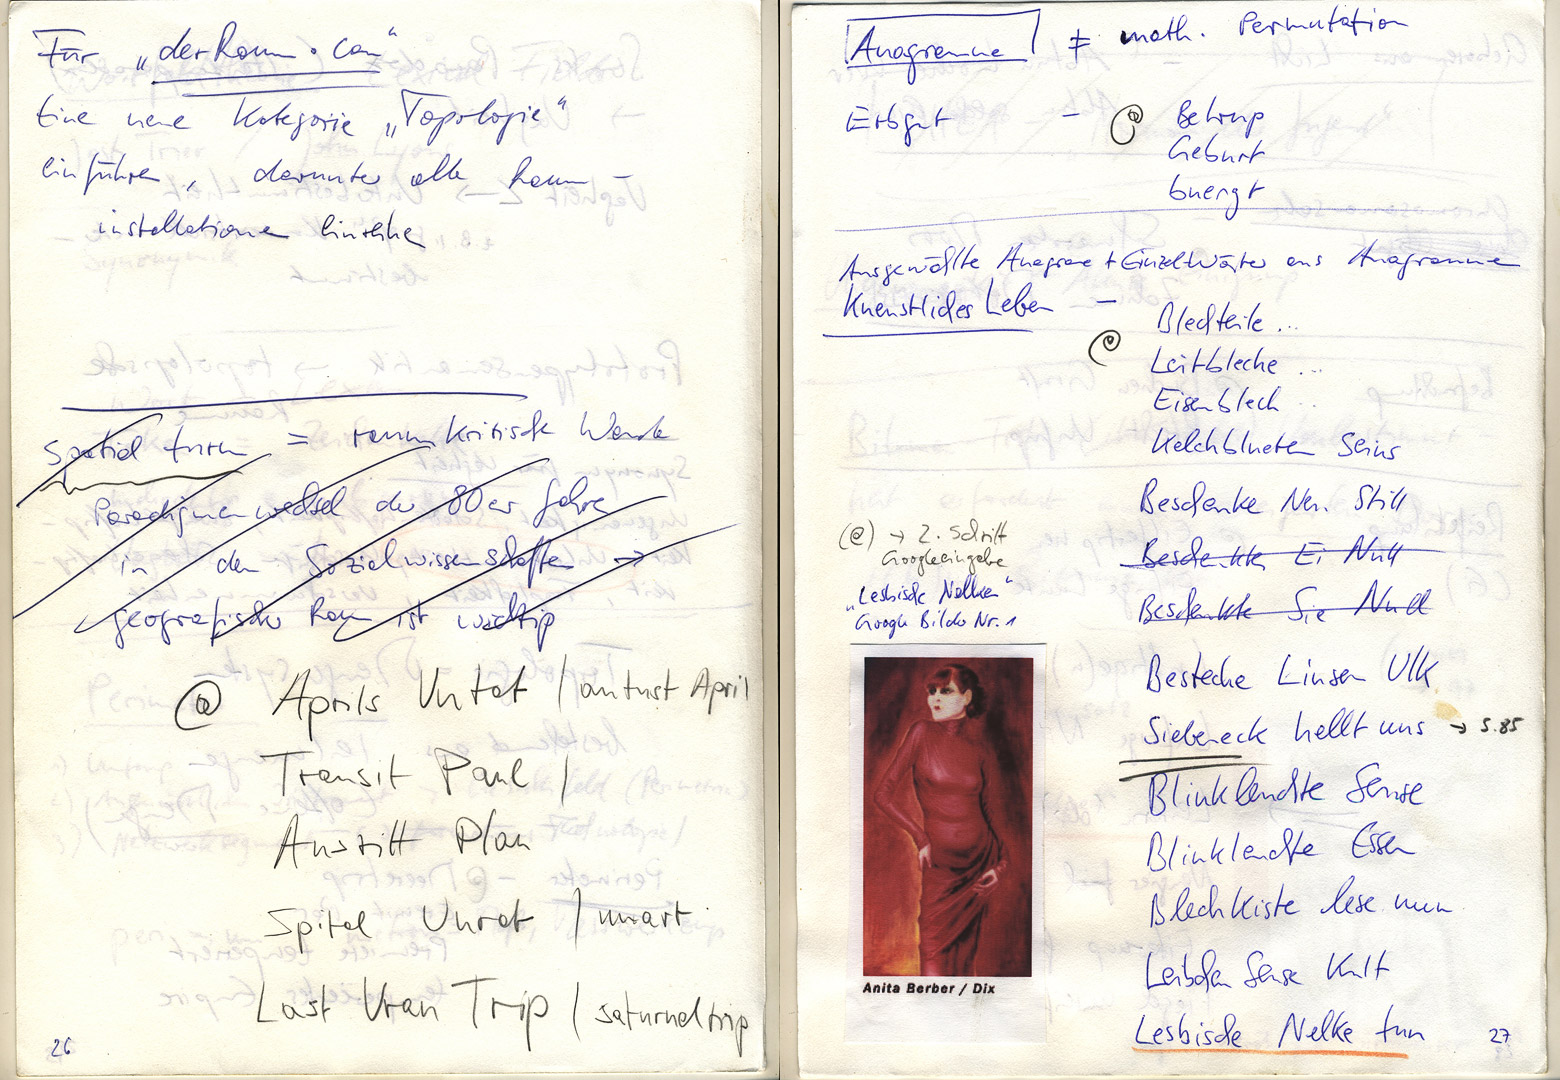 Für „derRaum.com“
Eine neue Kategorie „Topologie“
einführen, darunter alle Raum-
installationen einreihen
spatial turn = raumkritische Wende
Paradigmenwechsel der 80er Jahre
in den Sozialwissenschaften →
geografischer Raum ist wichtig
@ Aprils Untat / antust April
Transit Paul /
Austritt Plan
Spital Unrat / unart
Last Uran Trip / saturnaltrip
26
Anagramme ≠ math. Permutation
Erbgut - @ Betrug
Geburt
buergt
Ausgewählte Anagrame + Einzelwörter aus Anagramme
Kuenstliches Leben -
Blechteile ...
@ Leitbleche ...
Eisenblech ..
Kelchblueten Seins
Beschenke Still
Beschenkte Ei Null
Beschenkte Sie Null
(@) → 2. Schritt
Googleeingabe
„Lesbische Nelken“
Google Bilder Nr. 1
Anita Berber / Dix
Bestecke Linsen Ulk
Siebeneck hellt uns → S.85
Blinkleuchte Sense
Blinkleuchte Essen
Blechkiste lese nun
Leibchen Sense Kult
Lesbische Nelke tun
27